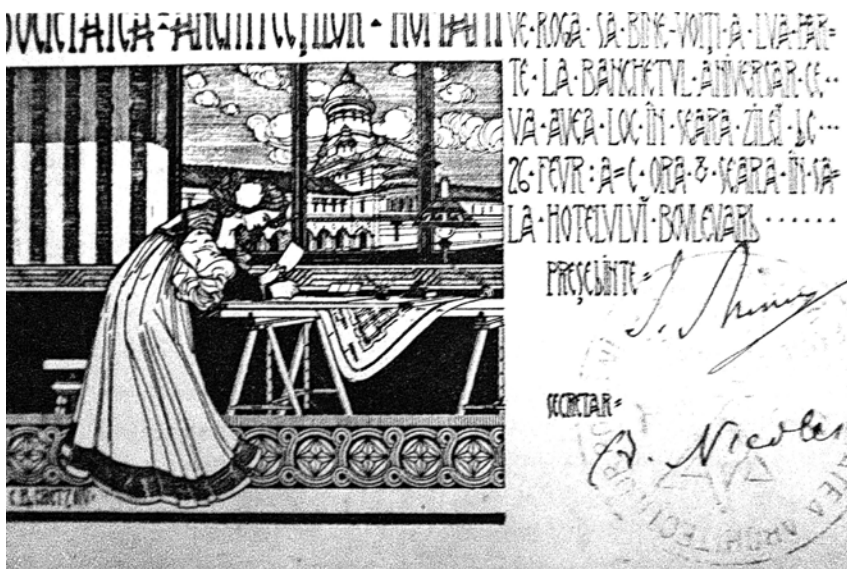 SOCIETATEA·ARHITECȚILOR·ROMÂNI
VE·ROGA·SA·BINE·VOIȚI·A·LVA·PAR=
TE·LA·BANCHETVL·ANIVERSAR·CE··
VA·AVEA·LOC·ÎN·SEARA·ZILEĬ·DE···
26·FEVR:A=C·ORA·8·SEARA·ÎN·SA=
LA·HOTELVLVĬ·BOVLEVARD······
PREȘEDINTE=
SECRETAR=